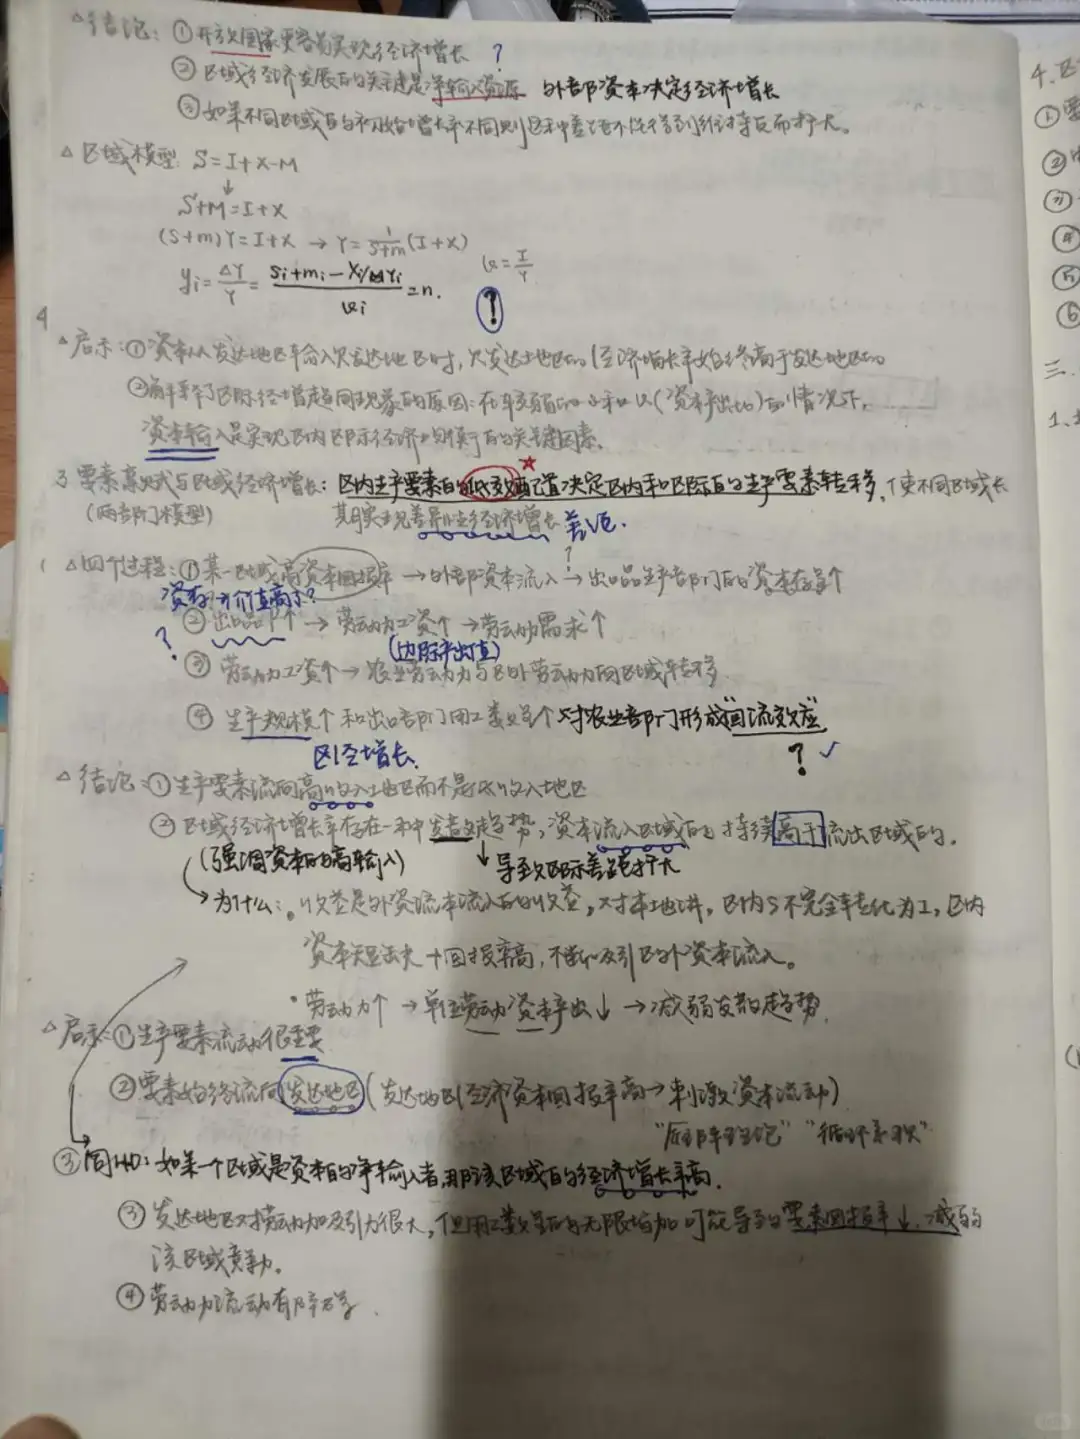 △结论：①开放国家更容易实现经济增长 ?
②区域经济发展的关键是净输入资源 外部资本决定经济增长
③如果不同区域的初始增长率不同则区际差距不能得到维持反而扩大。
△区域模型：S=I+X-M
↓
S+M=I+X
(S+m)Y=I+X → Y=1/(S+m)(I+X)
yi=ΔY/Y=(si+mi-Xi/Yi)/vi=n. v=I/Y
?
4
△启示：①资本从发达地区输入欠发达地区时，欠发达地区的经济增长率始终高于发达地区的
②解释了区际经增趋同现象的原因：在较弱的 和 (资本产出比)的情况下，
资本输入是实现区内区际经济均衡的关键因素。
3 要素禀赋与区域经济增长：区内生产要素的低效配置决定区内和区际的生产要素转移，使不同区域长
(两部门模型) 期实现差异化经济增长 差距.
△四个过程：①某一区域高资本回报率 → 外部资本流入 → 出口品生产部门的资本存量个
资本 价值高? ?
②出口品 个 → 劳动力工资个 → 劳动力需求个
? (边际产出值)
③劳动力工资个 → 农业劳动力与区外劳动力向区域转移.
④生产规模个和出口部门用工数量个 对农业部门形成"回流效应"
区经增长. ? ✓
△结论：①生产要素流向高收入地区而不是低收入地区
②区域经济增长率存在一种发散趋势，资本流入区域的持续高于流出区域的。
(强调资本的高输入) ↓导致区际差距扩大
→为什么：。收益是外资流本流入的收益，对本地讲，区内S不完全转化为I，区内
资本短缺大+回报率高，不断吸引区外资本流入。
·劳动力个 → 单位劳动资本产出↓ → 减弱发散趋势.
△启示：①生产要素流动很重要
②要素始终流向发达地区(发达地区经济资本回报率高→刺激资本流动)
"循环累积"
③同HD：如果一个区域是资本的净输入者，那该区域的经济增长率高.
③发达地区对劳动力吸引力很大，但用工数量的无限增加可能导致要素回报率↓，减弱
该区域竞争力。
④劳动力流动有障碍.